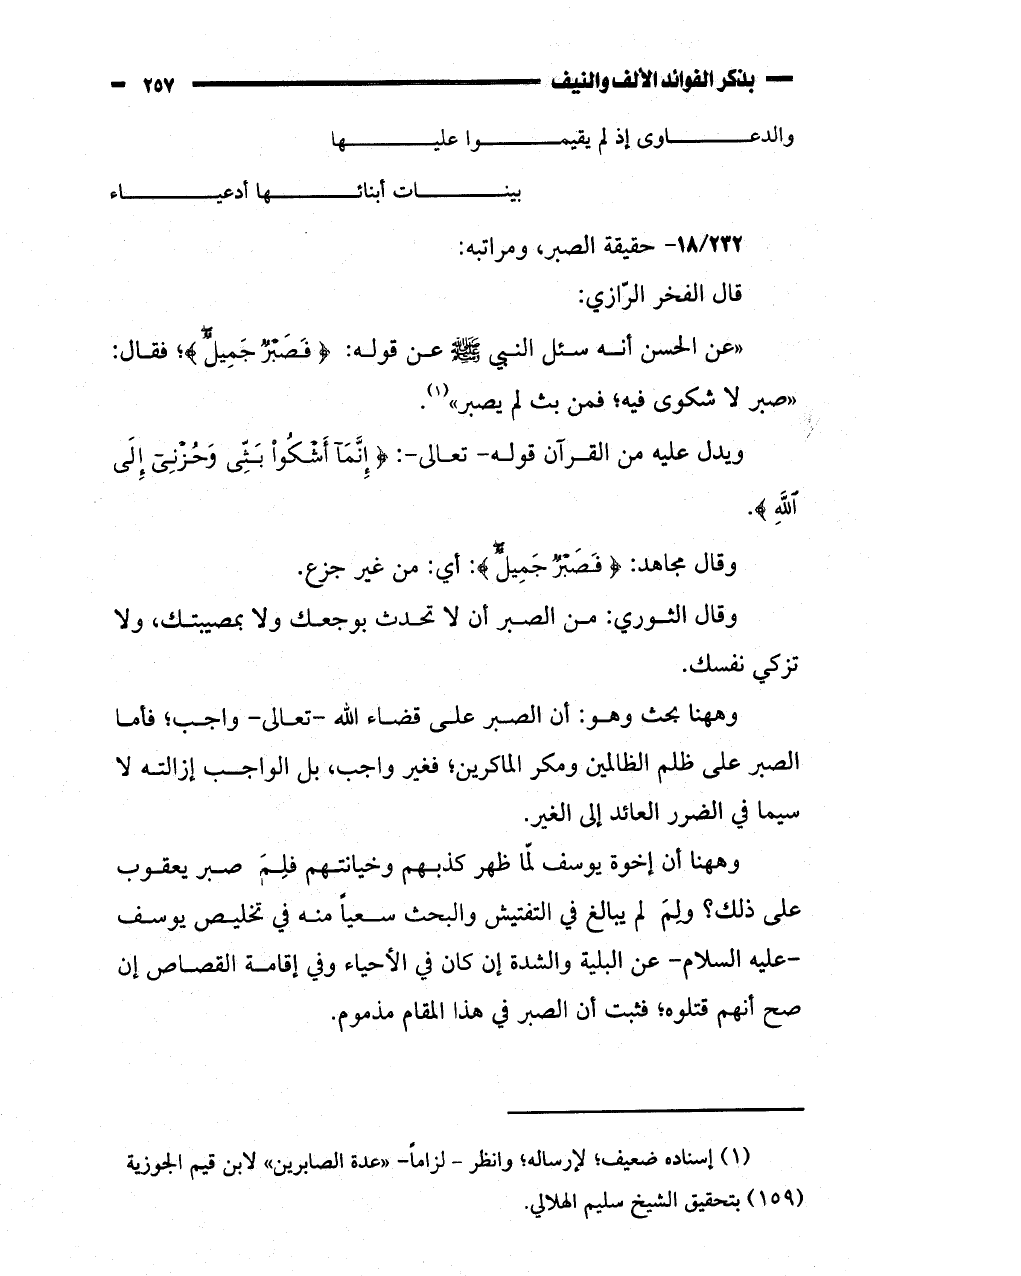 بذكر الفوائد الألف والنيف ٢٥٧
والدعـــاوى إذ لم يقيمـــوا عليـــها
بينـــات أبنائـــها أدعيـــاء
١٨/٢٣٢- حقيقة الصبر، ومراتبه:
قال الفخر الرّازي:
«عن الحسن أنه سئل النبي ﷺ عن قوله: ﴿ فَصَبْرٌ جَمِيلٌ ﴾؛ فقال:
«صبر لا شكوى فيه؛ فمن بث لم يصبر»(١).
ويدل عليه من القرآن قوله- تعالى-: ﴿ إِنَّمَآ أَشْكُوا۟ بَثِّى وَحُزْنِىٓ إِلَى
ٱللَّهِ ﴾.
وقال مجاهد: ﴿ فَصَبْرٌ جَمِيلٌ ﴾: أي: من غير جزع.
وقال الثوري: من الصبر أن لا تحدث بوجعك ولا بمصيبتك، ولا
تزكي نفسك.
وههنا بحث وهو: أن الصبر على قضاء الله -تعالى- واجب؛ فأما
الصبر على ظلم الظالمين ومكر الماكرين؛ فغير واجب، بل الواجب إزالته لا
سيما في الضرر العائد إلى الغير.
وههنا أن إخوة يوسف لمّا ظهر كذبهم وخيانتهم فلِمَ صبر يعقوب
على ذلك؟ ولِمَ لم يبالغ في التفتيش والبحث سعياً منه في تخليص يوسف
-عليه السلام- عن البلية والشدة إن كان في الأحياء وفي إقامة القصاص إن
صح أنهم قتلوه؛ فثبت أن الصبر في هذا المقام مذموم.
(١) إسناده ضعيف؛ لإرساله؛ وانظر - لزاماً- «عدة الصابرين» لابن قيم الجوزية
(١٥٩) بتحقيق الشيخ سليم الهلالي.